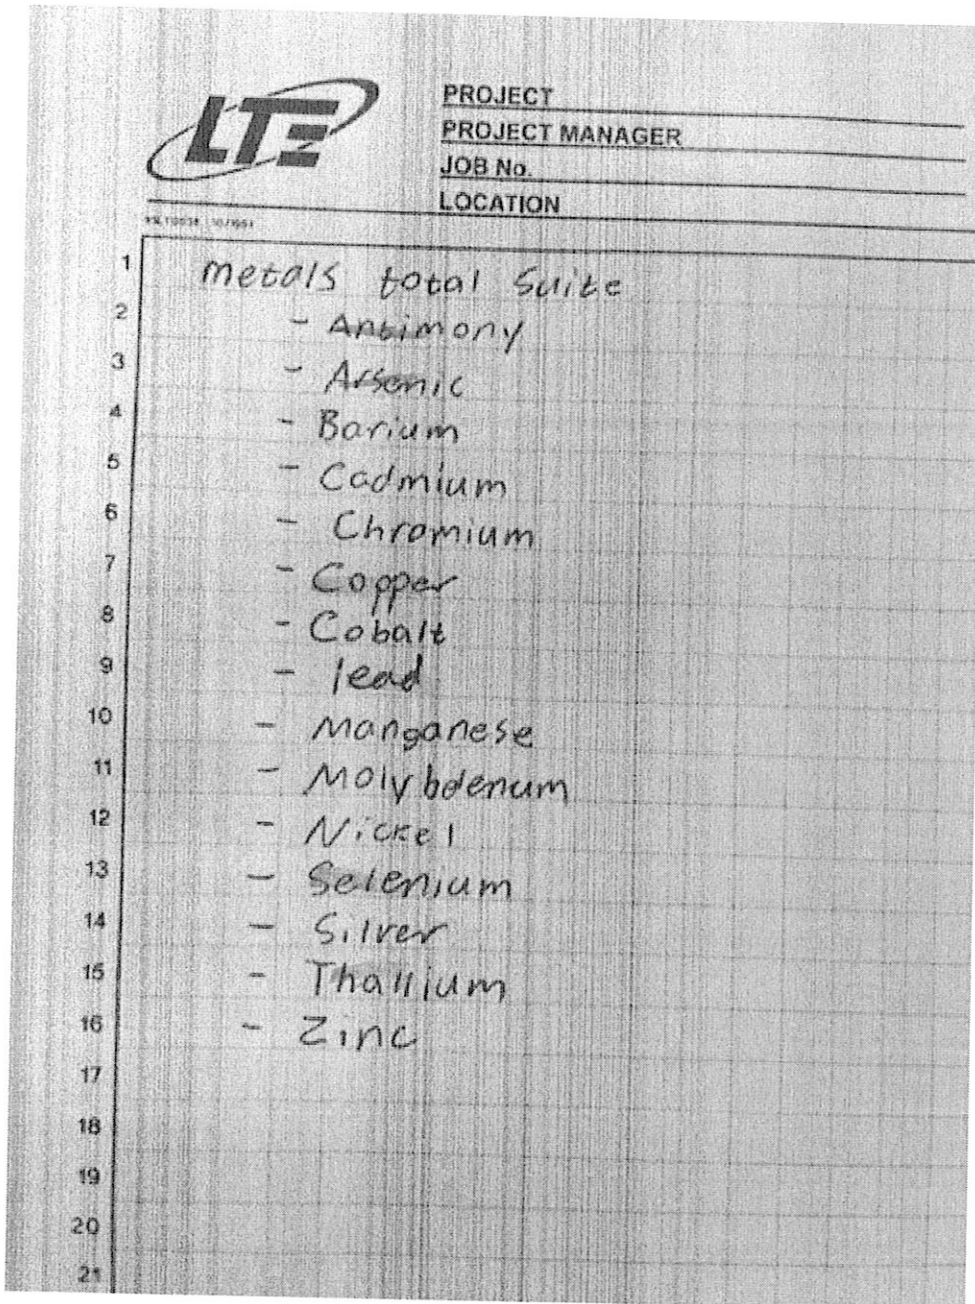 LTE
PROJECT
PROJECT MANAGER
JOB No.
LOCATION
1 metals total Suite
2 - Antimony
3 - Arsenic
4 - Barium
5 - Cadmium
6 - Chromium
7 - Copper
8 - Cobalt
9 - lead
10 - Manganese
11 - Molybdenum
12 - Nickel
13 - Selenium
14 - Silver
15 - Thallium
16 - Zinc
17
18
19
20
21